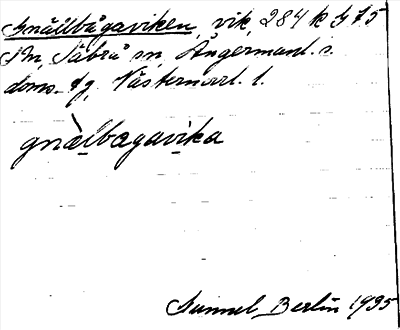 Gnällbågaviken, vik, 284 k S 75
Pm, Säbrå sn, Ångermanl. s.
doms. dg, Västernorrl. l.
gnälbagavika
Gunnel Berlin 1935